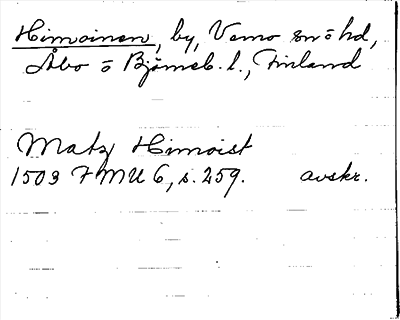 Himoinen, by, Vemo sn o hd,
Åbo o Björneb. l., Finland
Matz Himoist
1503 FMU 6, s. 259. avskr.